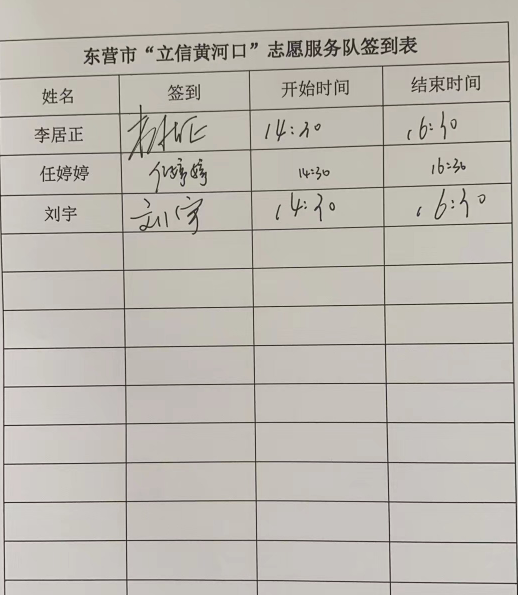 东营市“立信黄河口”志愿服务队签到表
姓名 签到 开始时间 结束时间
李居正 李居正 14:30 16:30
任婷婷 任婷婷 14:30 16:30
刘宇 刘宇 14:30 16:30